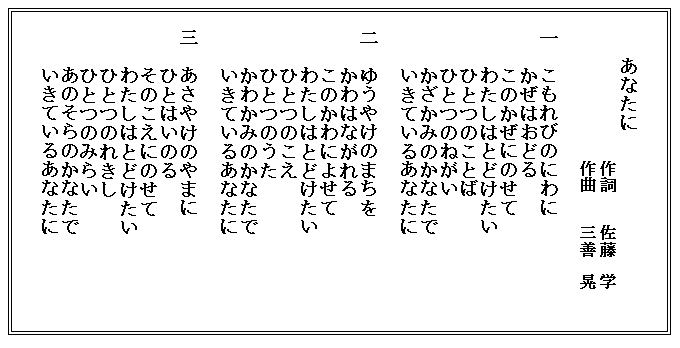 あなたに
作詞　佐藤　学
作曲　三善　晃
一
こもれびのにわに
かぜはおどる
このかぜにのせて
わたしはとどけたい
ひとつのことば
ひとつのねがい
かざかみのかなたで
いきているあなたに
二
ゆうやけのまちを
かわはながれる
このかわによせて
わたしはとどけたい
ひとつのこえ
ひとつのうた
かわかみのかなたで
いきているあなたに
三
あさやけのやまに
ひとはいのる
そのこえにのせて
わたしはとどけたい
ひとつのれきし
ひとつのみらい
あのそらのかなたで
いきているあなたに